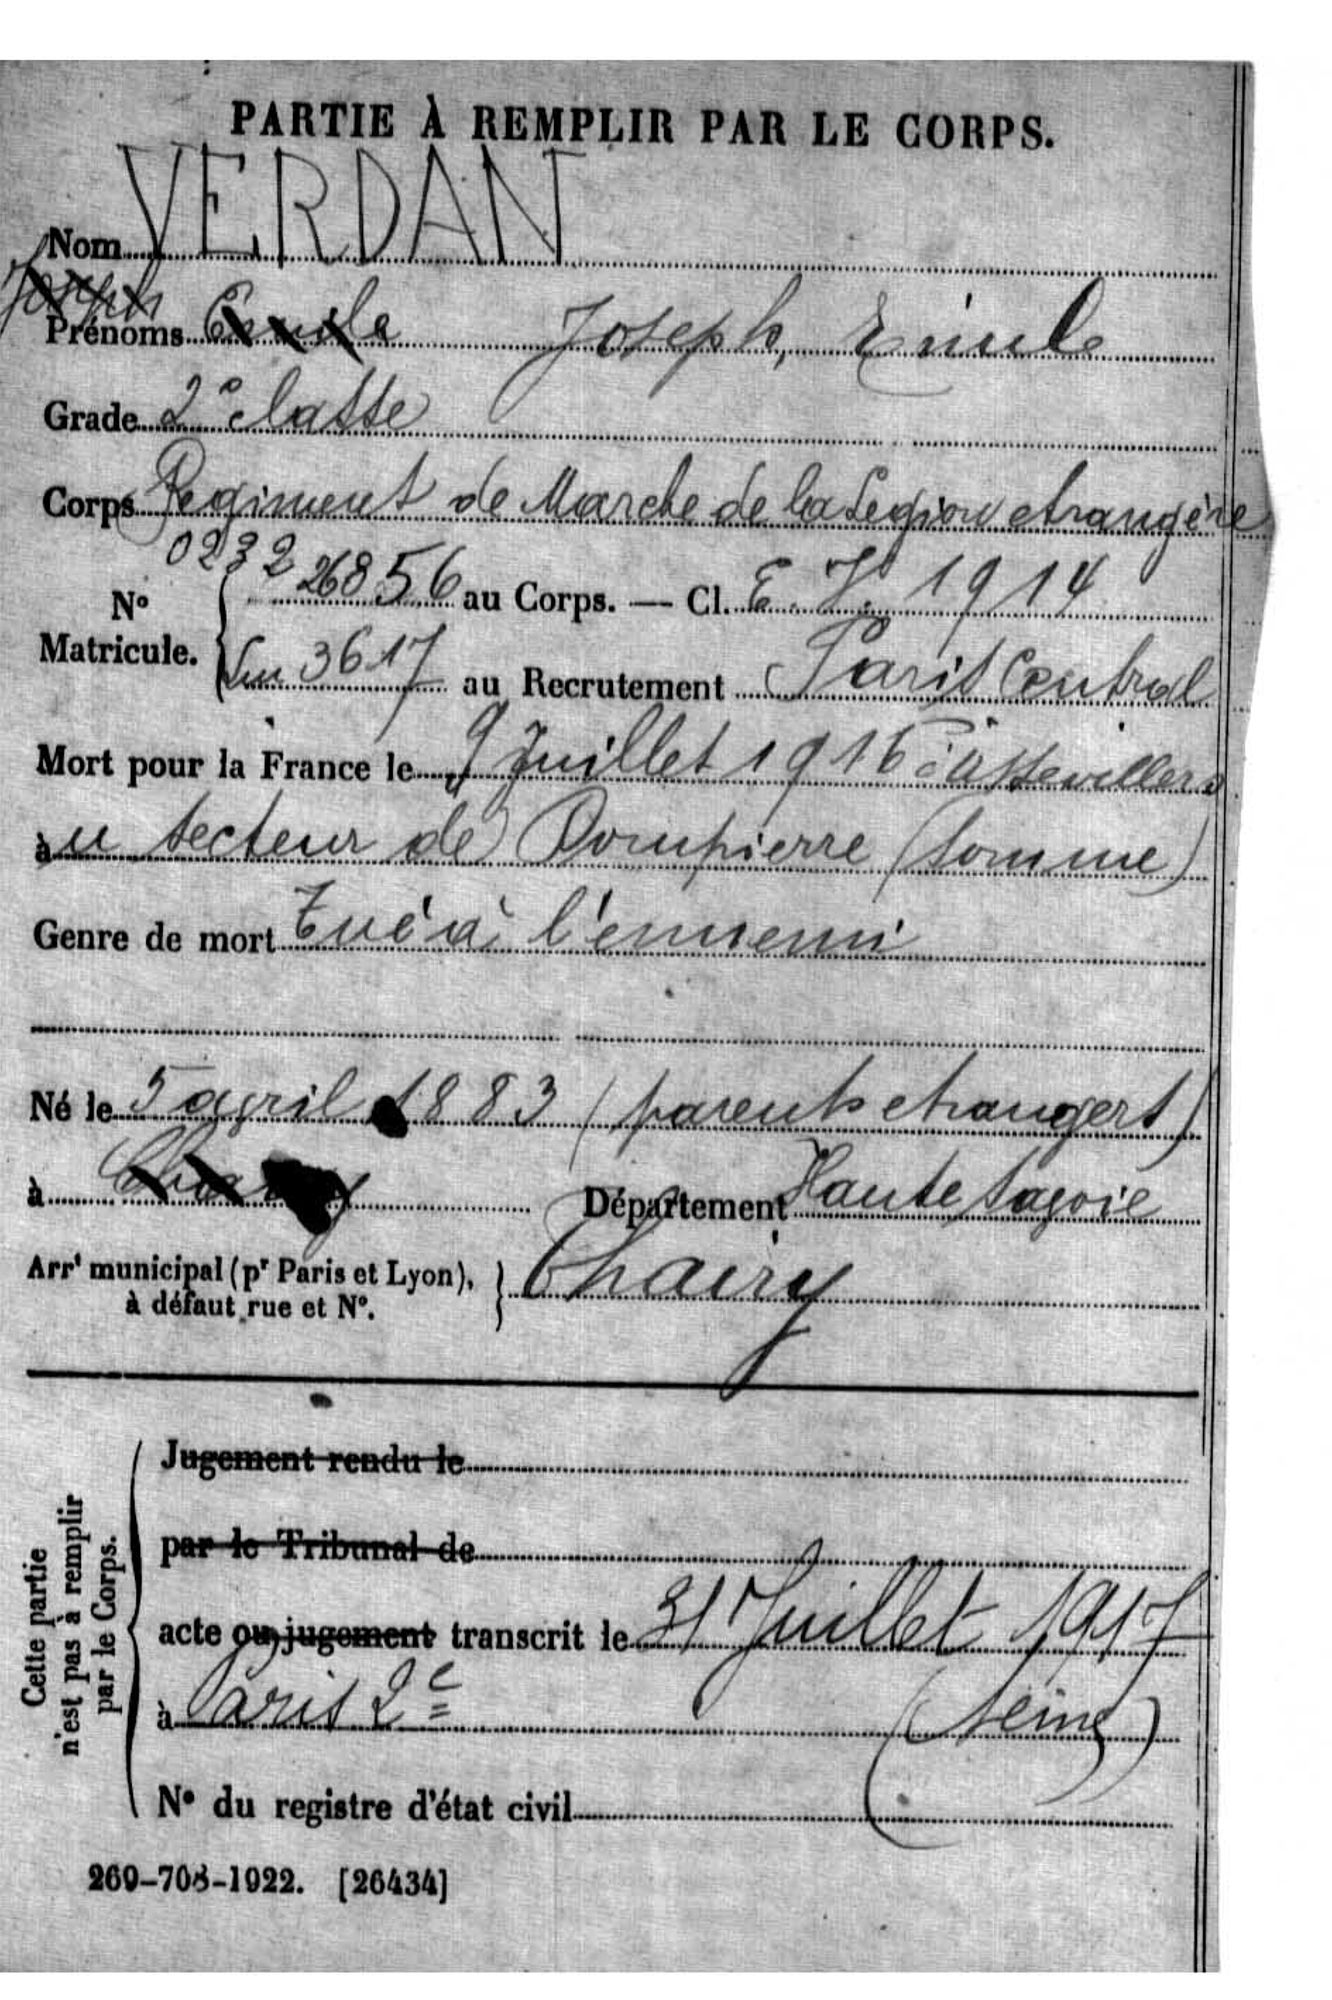 PARTIE À REMPLIR PAR LE CORPS.
Nom VERDAN
Joseph
Prénoms Emile Joseph, Emile
Grade 2e classe
Corps Regiment de Marche de la Legion etrangère
0232
N° Matricule. 26856 au Corps. — Cl. E. V. 1914
3617 au Recrutement Paris Central
Mort pour la France le 9 Juillet 1916 à Assevillers
au secteur de Dompierre (Somme)
Genre de mort Tué à l'ennemi
Né le 5 avril 1883 (parents etrangers)
à Département Haute Savoie
Arrt municipal (pr Paris et Lyon), à défaut rue et N°. Thairy
Cette partie n'est pas à remplir par le Corps.
Jugement rendu le
par le Tribunal de
acte ou jugement transcrit le 31 Juillet 1917
à Paris 2e (Seine)
N° du registre d'état civil
269-708-1922. [26434]